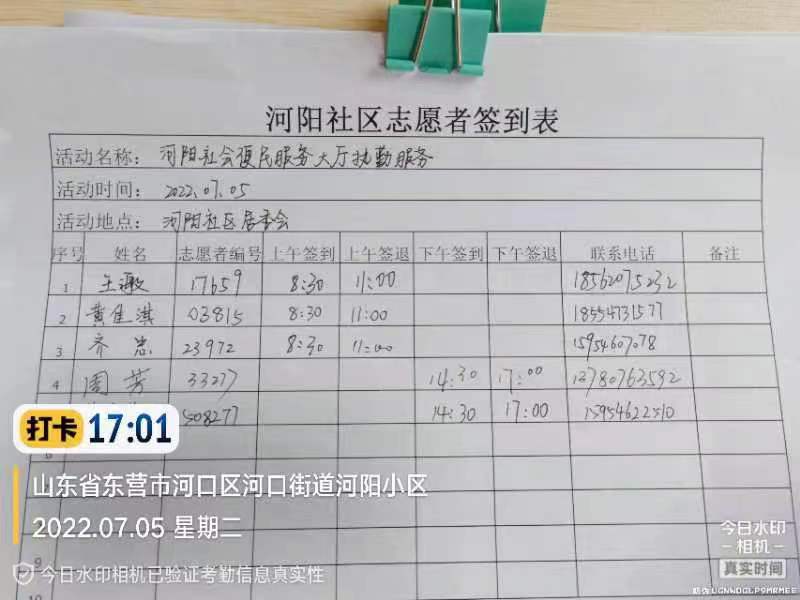 河阳社区志愿者签到表
活动名称： 河阳社会便民服务大厅执勤服务
活动时间： 2022.07.05
活动地点： 河阳社区居委会
序号 姓名 志愿者编号 上午签到 上午签退 下午签到 下午签退 联系电话 备注
1 王敏 17659 8:30 11:00 18562075232
2 黄佳淇 03815 8:30 11:00 18554731577
3 齐忠 23972 8:30 11:00 15954607078
4 周芳 33277 14:30 17:00 13780763592
508277 14:30 17:00 15954622510
打卡 17:01
山东省东营市河口区河口街道河阳小区
2022.07.05 星期二
今日水印相机已验证考勤信息真实性
9
10
今日水印
-相机-
真实时间
防伪 UGNWDGLP9MRMEE